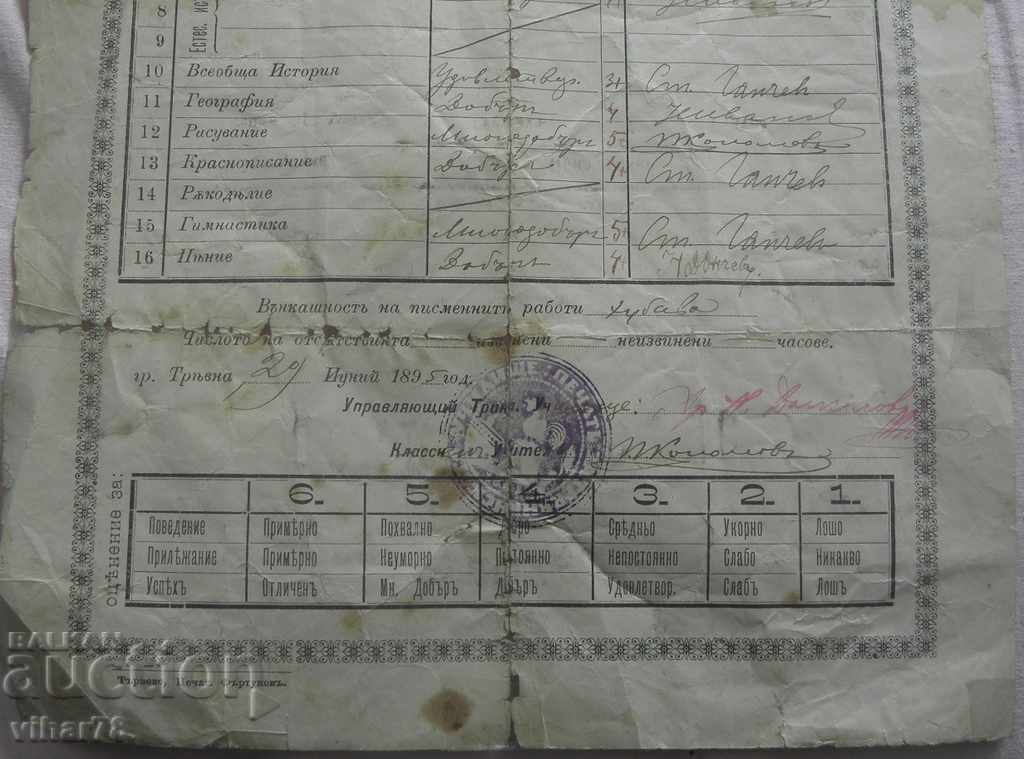 8
Естес. ис
9
10 Всеобща История Удовлетвор. 3+ Ст. Ганчев
11 География Добъръ 4
12 Рисувание Многодобъръ 5
13 Краснописание Добъръ 4+ Ст. Ганчев
14 Рѫкодѣлие
15 Гимнастика Многодобъръ 5+ Ст. Ганчев
16 Пѣние Добъръ 4+
Вънкашность на писменнитѣ работи хубава
Числото на отсѫтствията извинени неизвинени часове.
гр. Трѣвна 29 Иуний 1895 год.
Управляющий Учил
Классн Учител
оцѣнение за:
6. 5. 4. 3. 2. 1.
Поведение Примѣрно Похвално Срѣдньо Укорно Лошо
Прилѣжание Примѣрно Неуморно Постоянно Непостоянно Слабо Никакво
Успѣхъ Отличен Мн. Добъръ Добъръ Удовлетвор. Слабъ Лошъ
БАЛКАН
auction
vihar78